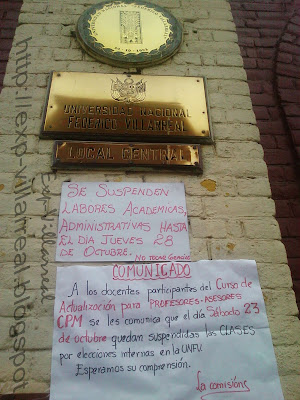 UNIVERSIDAD NACIONAL
FEDERICO VILLARREAL
LOCAL CENTRAL
SE SUSPENDEN
LABORES ACADEMICAS,
ADMINISTRATIVAS HASTA
EL DIA JUEVES 28
DE OCTUBRE. NO TOCAR GRACIAS
COMUNICADO
A los docentes participantes del Curso de
Actualización para PROFESORES-ASESORES
CPM se les comunica que el día Sábado 23
de octubre quedan suspendidas las CLASES
por elecciones internas en la UNFV.
Esperamos su comprensión.
La comisión
http://exp-villarreal.blogspot
Exp-Vill